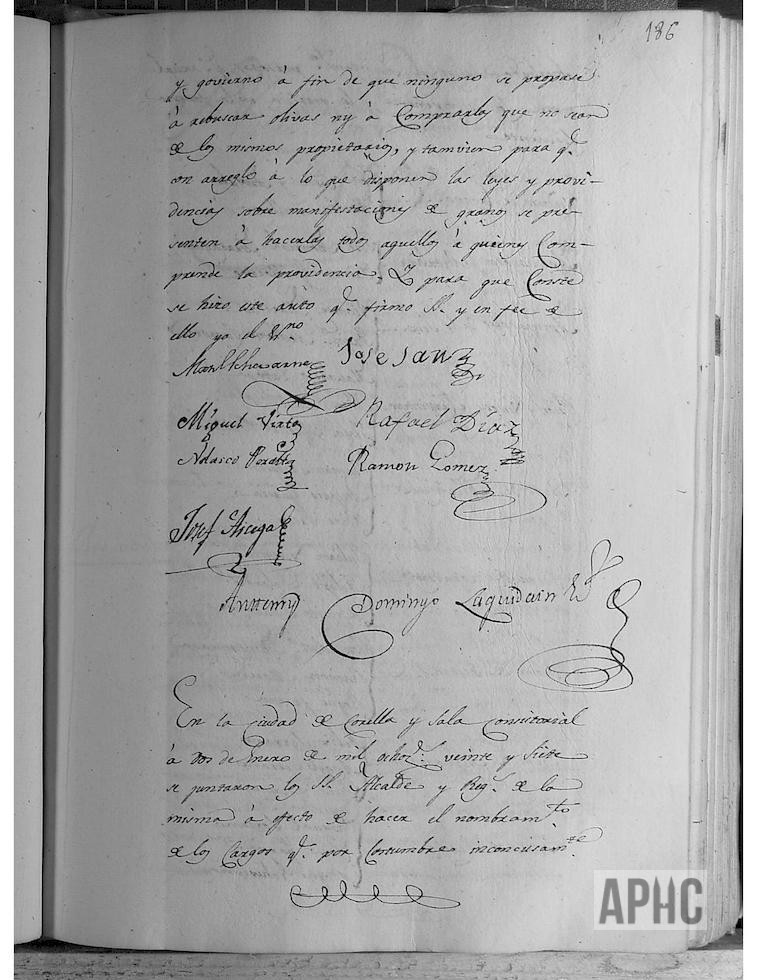 186
y govierno à fin de que ninguno se propase
à rebuscar olivas ny à Comprarlas que no sean
de los mismos propietarios, y tamvien para q.e
con arreglo à lo que disponen las leyes y provi-
dencias sobre manifestaciones de granos se pre-
senten à hacerlas todos aquellos à quienes Com-
prende la providencia. Y para que Conste
se hizo este auto q.e firmo SS. y en fee de
ello yo el Es.no
Jose Sanz
Miguel Virto
Rafael Díaz
Ramon Gomez
Josef
Anttemy Domingo Laquidain
En la ciudad de Corella y Sala Consistorial
à dos de Enero de mil ochoz.s veinte y siete
se juntaron los SS. Alcalde y Reg.s de la
misma à efecto de hacer el nombram.to
de los Cargos q.e por Costumbre inconcusam.te
APHC